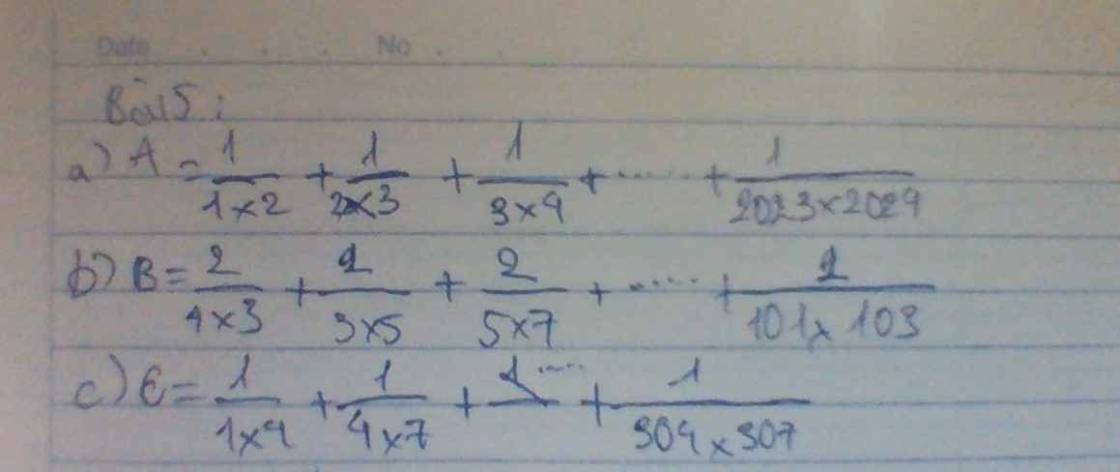 Date . . . No . .
Bài 5:
a) A = 1/1×2 + 1/2×3 + 1/3×4 + ...... + 1/2023×2024
b) B = 2/1×3 + 2/3×5 + 2/5×7 + ...... + 2/101×103
c) C = 1/1×4 + 1/4×7 + .... + 1/304×307